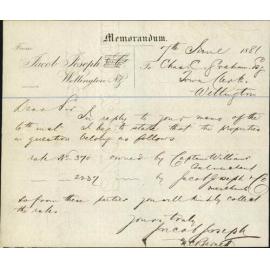 Memorandum.
From
Jacob Joseph & Co
Wellington, NZ
7th June 1881
To Chas C. Graham Esq
Town Clerk
Wellington
Dear Sir
In reply to your memo of the
6th inst. I beg to state that the properties
in question belong as follows
rate No. 370 owned by Captain William
2237 by Jacob Joseph &
merchants
so from these parties you will kindly collect
the rates
Yours truly
Jacob Joseph